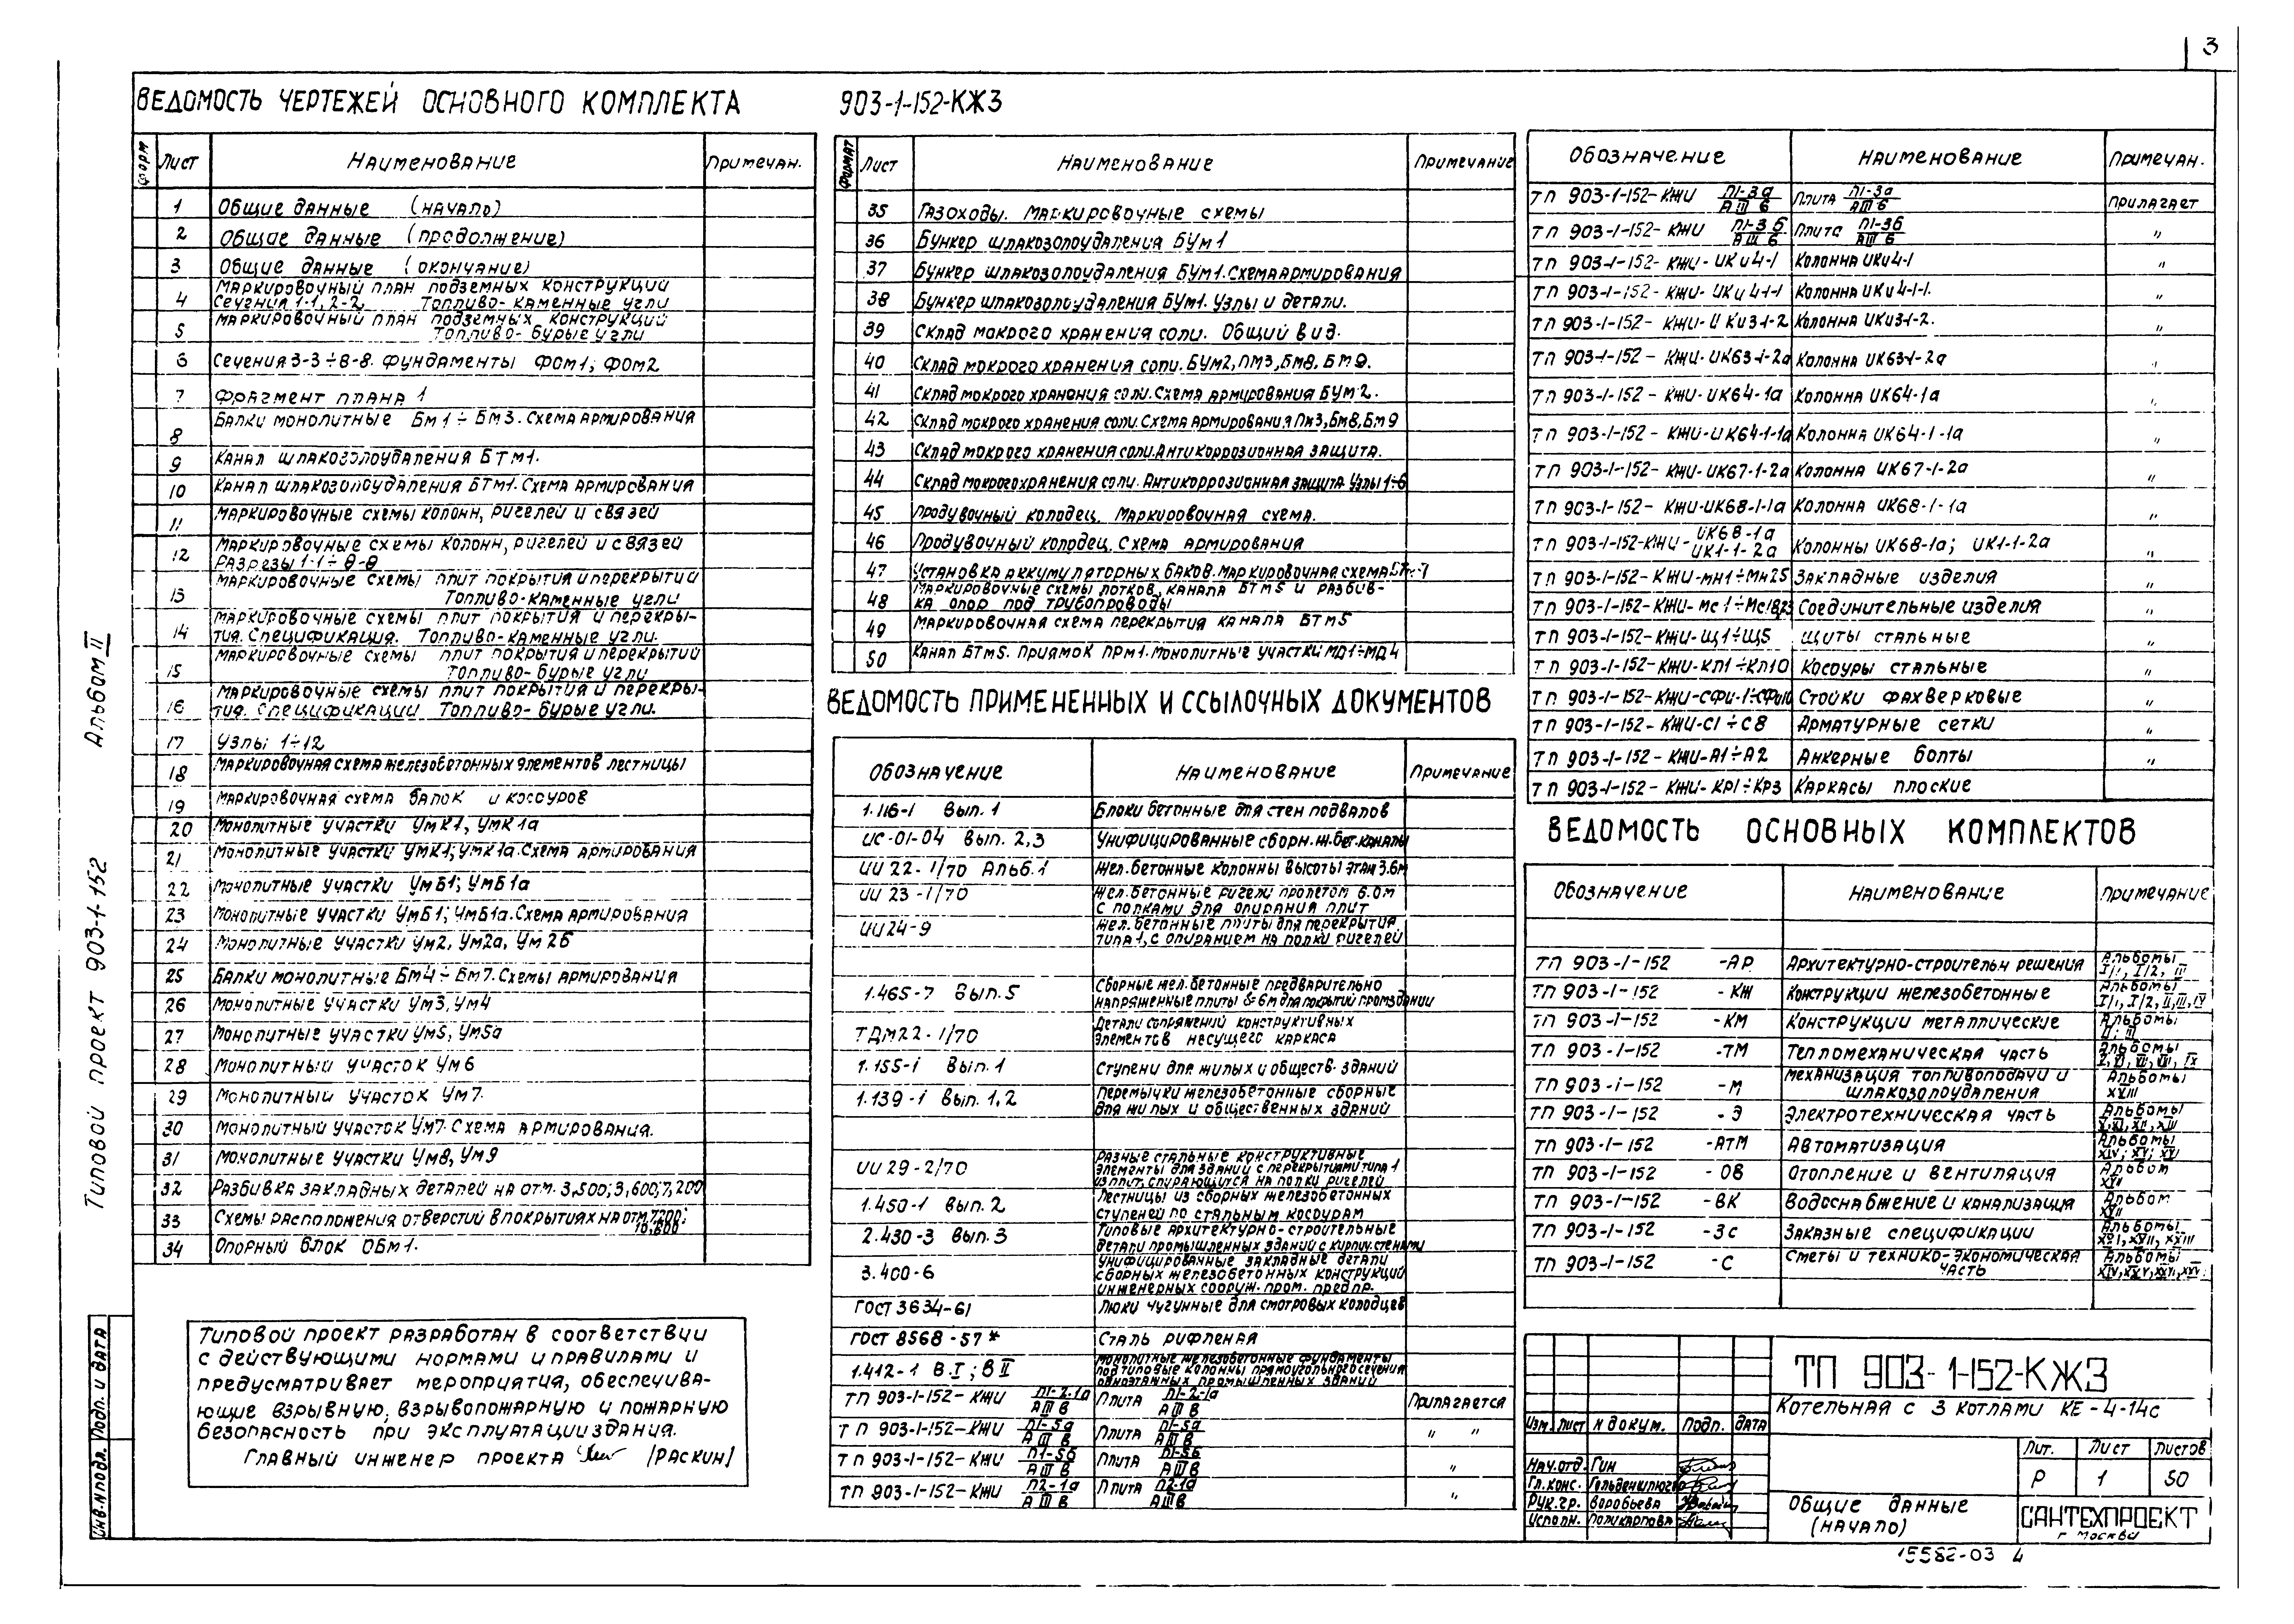 3
ВЕДОМОСТЬ ЧЕРТЕЖЕЙ ОСНОВНОГО КОМПЛЕКТА 903-1-152-КЖ3
ФОРМ Лист Наименование Примечан.
1 Общие данные (начало)
2 Общие данные (продолжение)
3 Общие данные (окончание)
Маркировочный план подземных конструкций
4 Сечения 1-1, 2-2, Топливо-каменные угли
Маркировочный план подземных конструкций
5 Топливо-бурые угли
6 Сечения 3-3÷8-8. Фундаменты Фом1; Фом2
7 Фрагмент плана 1
8 Балки монолитные Бм1÷Бм3. Схема армирования
9 Канал шлакозолоудаления БТм1.
10 Канал шлакозолоудаления БТм1. Схема армирования
11 Маркировочные схемы колонн, ригелей и связей
12 Маркировочные схемы колонн, ригелей и связей
Разрезы 1-1÷8-8
Маркировочные схемы плит покрытия и перекрытий
13 Топливо-каменные угли
Маркировочные схемы плит покрытия и перекры-
14 тия. Спецификация. Топливо-каменные угли.
Маркировочные схемы плит покрытия и перекрытий
15 Топливо-бурые угли
Маркировочные схемы плит покрытия и перекры-
16 тия. Спецификации Топливо-бурые угли.
17 Узлы 1÷12
18 Маркировочная схема железобетонных элементов лестницы
19 Маркировочная схема балок и косоуров
20 Монолитные участки УмК1, УмК1а
21 Монолитные участки УмК1; УмК1а. Схема армирования
22 Монолитные участки УмБ1; УмБ1а
23 Монолитные участки УмБ1; УмБ1а. Схема армирования
24 Монолитные участки Ум2, Ум2а, Ум2б
25 Балки монолитные Бм4÷Бм7. Схемы армирования
26 Монолитные участки Ум3, Ум4
27 Монолитные участки Ум5, Ум5а
28 Монолитный участок Ум6
29 Монолитный участок Ум7.
30 Монолитный участок Ум7. Схема армирования.
31 Монолитные участки Ум8, Ум9
32 Разбивка закладных деталей на отм. 3,500; 3,600; 7,200
33 Схемы расположения отверстий в покрытиях на отм. 7,200;
10,800
34 Опорный блок ОБм1.
ФОРМАТ Лист Наименование Примечание
35 Газоходы. Маркировочные схемы
36 Бункер шлакозолоудаления БУм1
37 Бункер шлакозолоудаления БУм1. Схема армирования
38 Бункер шлакозолоудаления БУм1. Узлы и детали.
39 Склад мокрого хранения соли. Общий вид.
40 Склад мокрого хранения соли. БУм2, Пм3, Бм8, Бм9.
41 Склад мокрого хранения соли. Схема армирования БУм2.
42 Склад мокрого хранения соли. Схема армирования Пм3, Бм8, Бм9
43 Склад мокрого хранения соли. Антикоррозионная защита.
44 Склад мокрого хранения соли. Антикоррозионная защита Узлы 1÷6
45 Продувочный колодец. Маркировочная схема.
46 Продувочный колодец. Схема армирования
47 Установка аккумуляторных баков. Маркировочная схема
Маркировочные схемы лотков, канала БТм5 и разбив-
48 ка опор под трубопроводы
49 Маркировочная схема перекрытия канала БТм5
50 Канал БТм5. Приямок Прм1. Монолитные участки МД1÷МД4
ВЕДОМОСТЬ ПРИМЕНЕННЫХ И ССЫЛОЧНЫХ ДОКУМЕНТОВ
Обозначение Наименование Примечание
1.116-1 Вып. 1 Блоки бетонные для стен подвалов
ИС-01-04 Вып. 2,3 Унифицированные сборн. ж.бет. каналы
ИИ 22-1/70 Альб. 1 Жел.бетонные колонны высоты этаж 3.6м
ИИ 23-1/70 Жел.бетонные ригели пролетом 6.0м
с полками для опирания плит
ИИ24-9 Жел.бетонные плиты для перекрытия
типа 1, с опиранием на полки ригелей
1.465-7 Вып. 5 Сборные жел.бетонные предварительно
напряженные плиты 6м для покрытий промзданий
ТДМ22-1/70 Детали сопряжений конструктивных
элементов несущего каркаса
1.155-1 Вып. 1 Ступени для жилых и обществ. зданий
1.139-1 Вып. 1,2 Перемычки железобетонные сборные
для жилых и общественных зданий
ИИ 29-2/70 Разные стальные конструктивные
элементы для зданий с перекрытиями типа 1
из плит, опирающихся на полки ригелей
1.450-1 Вып. 2 Лестницы из сборных железобетонных
ступеней по стальным косоурам
2.430-3 Вып. 3 Типовые архитектурно-строительные
детали промышленных зданий с кирпич. стенами
3.400-6 Унифицированные закладные детали
сборных железобетонных конструкций
инженерных сооруж. пром. предпр.
ГОСТ 3634-61 Люки чугунные для смотровых колодцев
ГОСТ 8568-57* Сталь рифленая
1.412-1 В.I; В II Монолитные железобетонные фундаменты
под типовые колонны прямоугольного сечения
одноэтажных промышленных зданий
ТП 903-1-152-КЖИ П1-2-1а/АIIIв Плита П1-2-1а/АIIIв Прилагается
ТП 903-1-152-КЖИ П1-5а/АIIIв Плита П1-5а/АIIIв " "
ТП 903-1-152-КЖИ П1-5б/АIIIв Плита П1-5б/АIIIв "
ТП 903-1-152-КЖИ П2-1а/АIIIв Плита П2-1а/АIIIв "
Обозначение Наименование Примечан.
ТП 903-1-152-КЖИ П1-3а/АIIIб Плита П1-3а/АIIIб Прилагает
ТП 903-1-152-КЖИ П1-3б/АIIIб Плита П1-3б/АIIIб "
ТП 903-1-152-КЖИ-ИКи4-1 Колонна ИКи4-1 "
ТП 903-1-152-КЖИ-ИКи4-1-1 Колонна ИКи4-1-1. "
ТП 903-1-152-КЖИ-ИКи31-2 Колонна ИКи31-2. "
ТП 903-1-152-КЖИ-ИК63-1-2а Колонна ИК63-1-2а "
ТП 903-1-152-КЖИ-ИК64-1а Колонна ИК64-1а "
ТП 903-1-152-КЖИ-ИК64-1-1а Колонна ИК64-1-1а "
ТП 903-1-152-КЖИ-ИК67-1-2а Колонна ИК67-1-2а "
ТП 903-1-152-КЖИ-ИК68-1-1а Колонна ИК68-1-1а "
ТП 903-1-152-КЖИ-ИК68-1а ИК1-1-2а Колонны ИК68-1а; ИК1-1-2а "
ТП 903-1-152-КЖИ-МН1÷МН25 Закладные изделия "
ТП 903-1-152-КЖИ-МС1÷ Соединительные изделия "
ТП 903-1-152-КЖИ-Щ1÷Щ5 Щиты стальные "
ТП 903-1-152-КЖИ-КЛ1÷КЛ10 Косоуры стальные "
ТП 903-1-152-КЖИ-СФи-1÷ Стойки фахверковые "
ТП 903-1-152-КЖИ-С1÷С8 Арматурные сетки "
ТП 903-1-152-КЖИ-А1÷А2 Анкерные болты "
ТП 903-1-152-КЖИ-КР1÷КР3 Каркасы плоские
ВЕДОМОСТЬ ОСНОВНЫХ КОМПЛЕКТОВ
Обозначение Наименование Примечание
ТП 903-1-152 -АР Архитектурно-строительн решения Альбомы I/1, I/2, III
ТП 903-1-152 -КЖ Конструкции железобетонные Альбомы I/1, I/2, II, III, IV
ТП 903-1-152 -КМ Конструкции металлические Альбомы II; III
ТП 903-1-152 -ТМ Тепломеханическая часть Альбомы
ТП 903-1-152 -М Механизация топливоподачи и
шлакозолоудаления Альбомы XVIII
ТП 903-1-152 -Э Электротехническая часть Альбомы
ТП 903-1-152 -АТМ Автоматизация Альбомы
ТП 903-1-152 -ОВ Отопление и вентиляция Альбом
ТП 903-1-152 -ВК Водоснабжение и канализация Альбом
ТП 903-1-152 -ЗС Заказные спецификации Альбомы
ТП 903-1-152 -С Сметы и технико-экономическая
часть Альбомы
Типовой проект разработан в соответствии
с действующими нормами и правилами и
предусматривает мероприятия, обеспечива-
ющие взрывную, взрывопожарную и пожарную
безопасность при эксплуатации здания.
Главный инженер проекта /РАСКИН/
Типовой проект 903-1-152 Альбом II
Инв.№подл. Подп. и дата
ТП 903-1-152-КЖ3
Котельная с 3 котлами КЕ-4-14с
Изм. Лист № докум. Подп. Дата
Лит. Лист Листов
Р 1 50
Нач.отд. Гин
Гл.конс.
Рук.гр. Воробьева
Исполн. Поликарпова
Общие данные
(начало)
САНТЕХПРОЕКТ
г Москва
15582-03 4